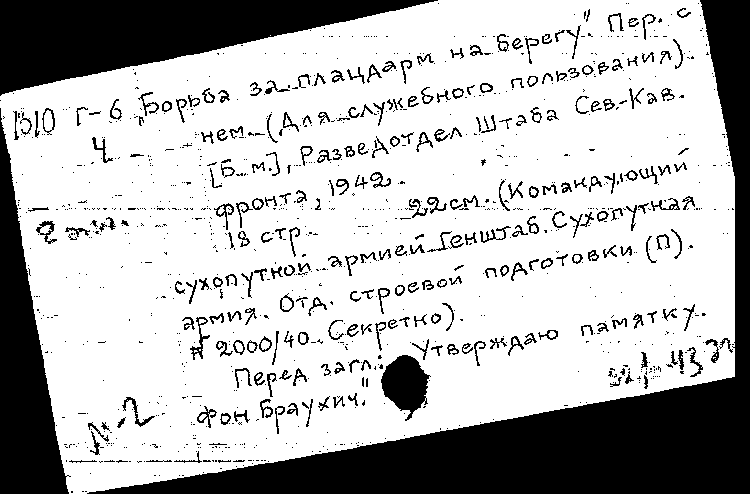 1310 Г-6 „Борьба за плацдарм на берегу". Пер. с
4 нем. (Для служебного пользования).
[Б.м.], Разведотдел Штаба Сев.-Кав.
фронта, 1942.
2 экз. 18 стр. 22 см. (Командующий
сухопутной армией Генштаб. Сухопутная
армия. Отд. строевой подготовки (П).
№ 2000/40. Секретно).
Перед загл.: „Утверждаю памятку.
фон Браухич."
№-2